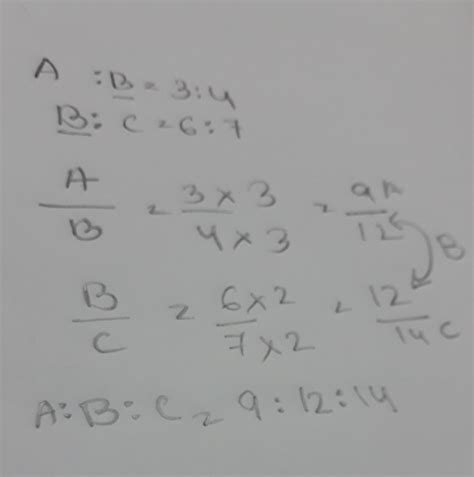 A : B = 3:4
B : C = 6:7
A/B = 3 × 3 / 4 × 3 = 9 A / 12
B
B/C = 6 × 2 / 7 × 2 = 12 / 14 C
A : B : C = 9 : 12 : 14